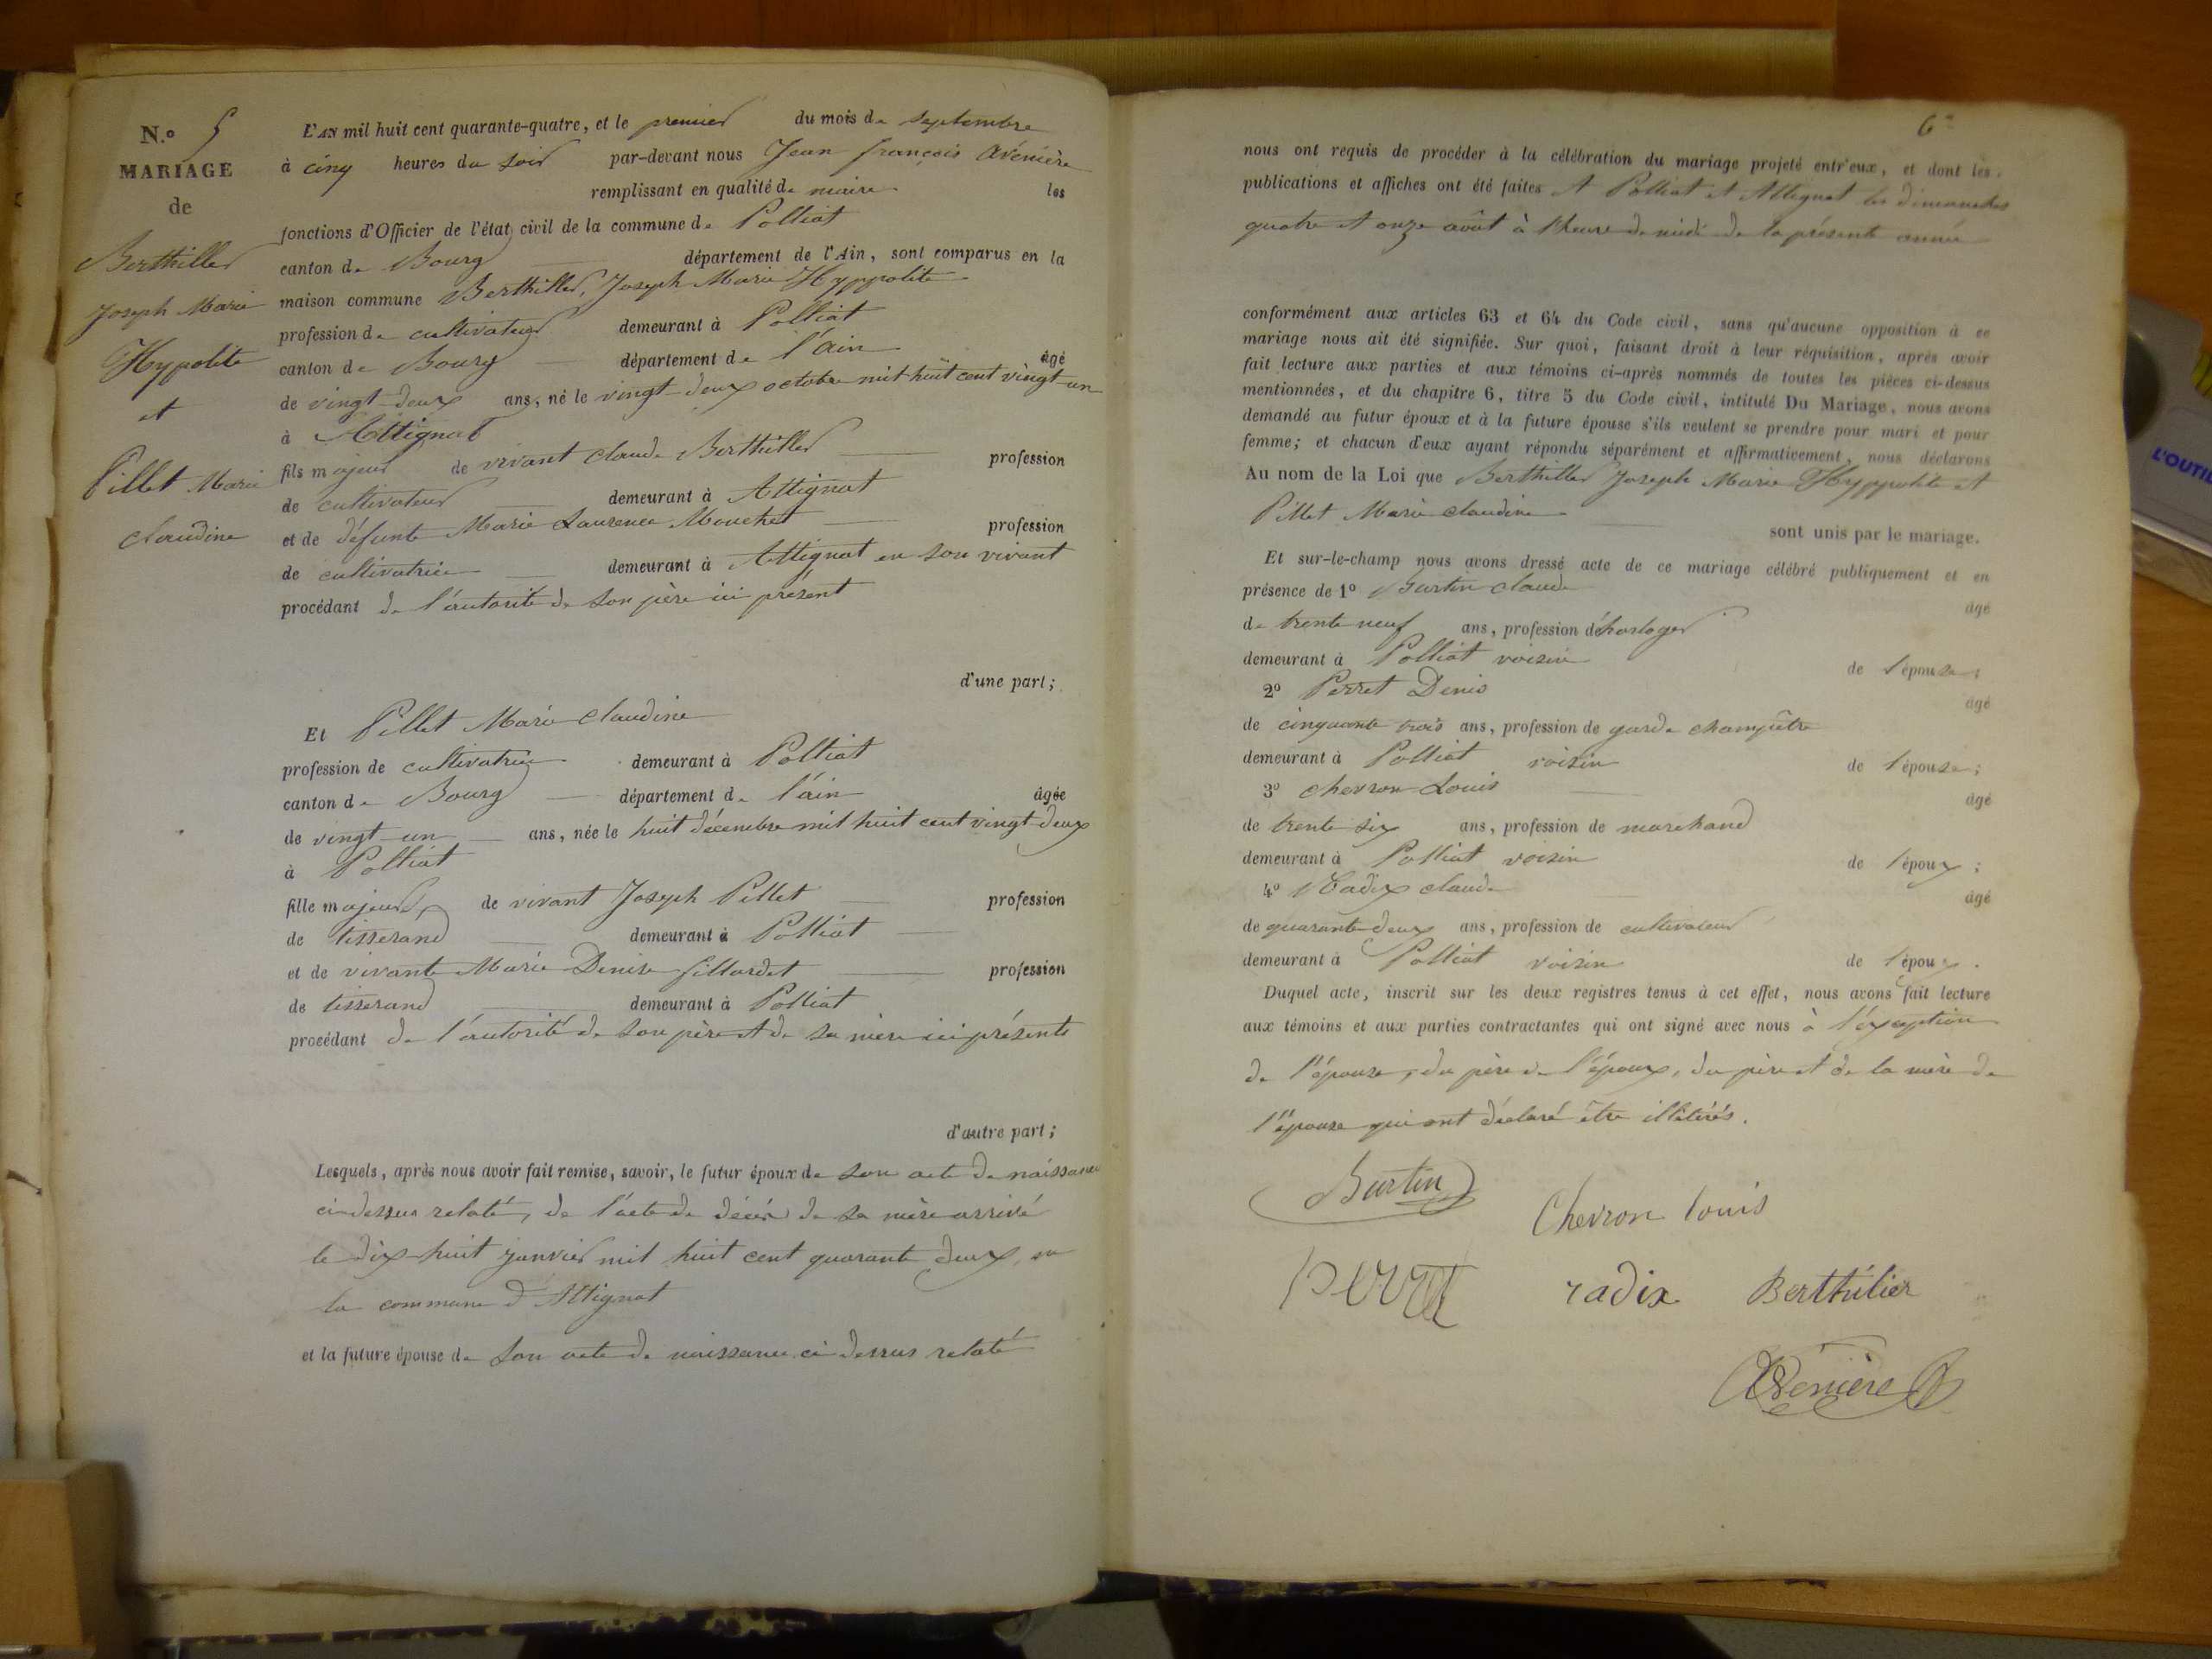 N.o 5
MARIAGE
de
Berthiller
Joseph Marie
Hypolite
et
Pillet Marie
claudine
L'AN mil huit cent quarante-quatre, et le premier du mois de septembre
à cinq heures du soir par-devant nous Jean françois Avénière
remplissant en qualité de maire les
fonctions d'Officier de l'état civil de la commune de Polliat
canton de Bourg département de l'Ain, sont comparus en la
maison commune Berthiller, Joseph Marie Hyppolite
profession de cultivateur demeurant à Polliat
canton de Bourg département de l'ain âgé
de vingt-deux ans, né le vingt-deux octobre mil huit cent vingt-un
à Attignat
fils majeur de vivant claude Berthiller profession
de cultivateur demeurant à Attignat
et de défunte Marie Laurence Mouchet profession
de cultivatrice demeurant à Attignat en son vivant
procédant de l'autorité de son père ici présent
d'une part;
Et Pillet Marie claudine
profession de cultivatrice demeurant à Polliat
canton de Bourg département de l'ain âgée
de vingt-un ans, née le huit décembre mil huit cent vingt-deux
à Polliat
fille majeure de vivant Joseph Pillet profession
de tisserand demeurant à Polliat
et de vivante Marie Denise fillardet profession
de tisserand demeurant à Polliat
procédant de l'autorité de son père et de sa mère ici présents
d'autre part;
Lesquels, après nous avoir fait remise, savoir, le futur époux de son acte de naissance
ci-dessus relaté, de l'acte de décès de sa mère arrivé
le dix-huit janvier mil huit cent quarante deux, en
la commune d'Attignat
et la future épouse de son acte de naissance ci dessus relaté
6
nous ont requis de procéder à la célébration du mariage projeté entr'eux, et dont les
publications et affiches ont été faites A Polliat et Attignat les dimanches
quatre et onze août à l'heure de midi de la présente année
conformément aux articles 63 et 64 du Code civil, sans qu'aucune opposition à ce
mariage nous ait été signifiée. Sur quoi, faisant droit à leur réquisition, après avoir
fait lecture aux parties et aux témoins ci-après nommés de toutes les pièces ci-dessus
mentionnées, et du chapitre 6, titre 5 du Code civil, intitulé Du Mariage, nous avons
demandé au futur époux et à la future épouse s'ils veulent se prendre pour mari et pour
femme; et chacun d'eux ayant répondu séparément et affirmativement, nous déclarons
Au nom de la Loi que Berthiller Joseph Marie Hyppolite et
Pillet Marie claudine
sont unis par le mariage.
Et sur-le-champ nous avons dressé acte de ce mariage célébré publiquement et en
présence de 1o Burtin claude
âgé
de trente neuf ans, profession d'horloger
demeurant à Polliat voisin de l'épouse;
2o Perret Denis
âgé
de cinquante trois ans, profession de garde champêtre
demeurant à Polliat voisin de l'épouse;
3o chevron Louis
âgé
de trente six ans, profession de marchand
demeurant à Polliat voisin de l'époux;
4o Radix claude
âgé
de quarante-deux ans, profession de cultivateur
demeurant à Polliat voisin de l'époux.
Duquel acte, inscrit sur les deux registres tenus à cet effet, nous avons fait lecture
aux témoins et aux parties contractantes qui ont signé avec nous à l'exception
de l'épouse, du père de l'époux, du père et de la mère de
l'épouse qui ont déclaré être illétérés.
Burtin
Chevron louis
perret radix Berthilier
Avénière
L'OUTIL